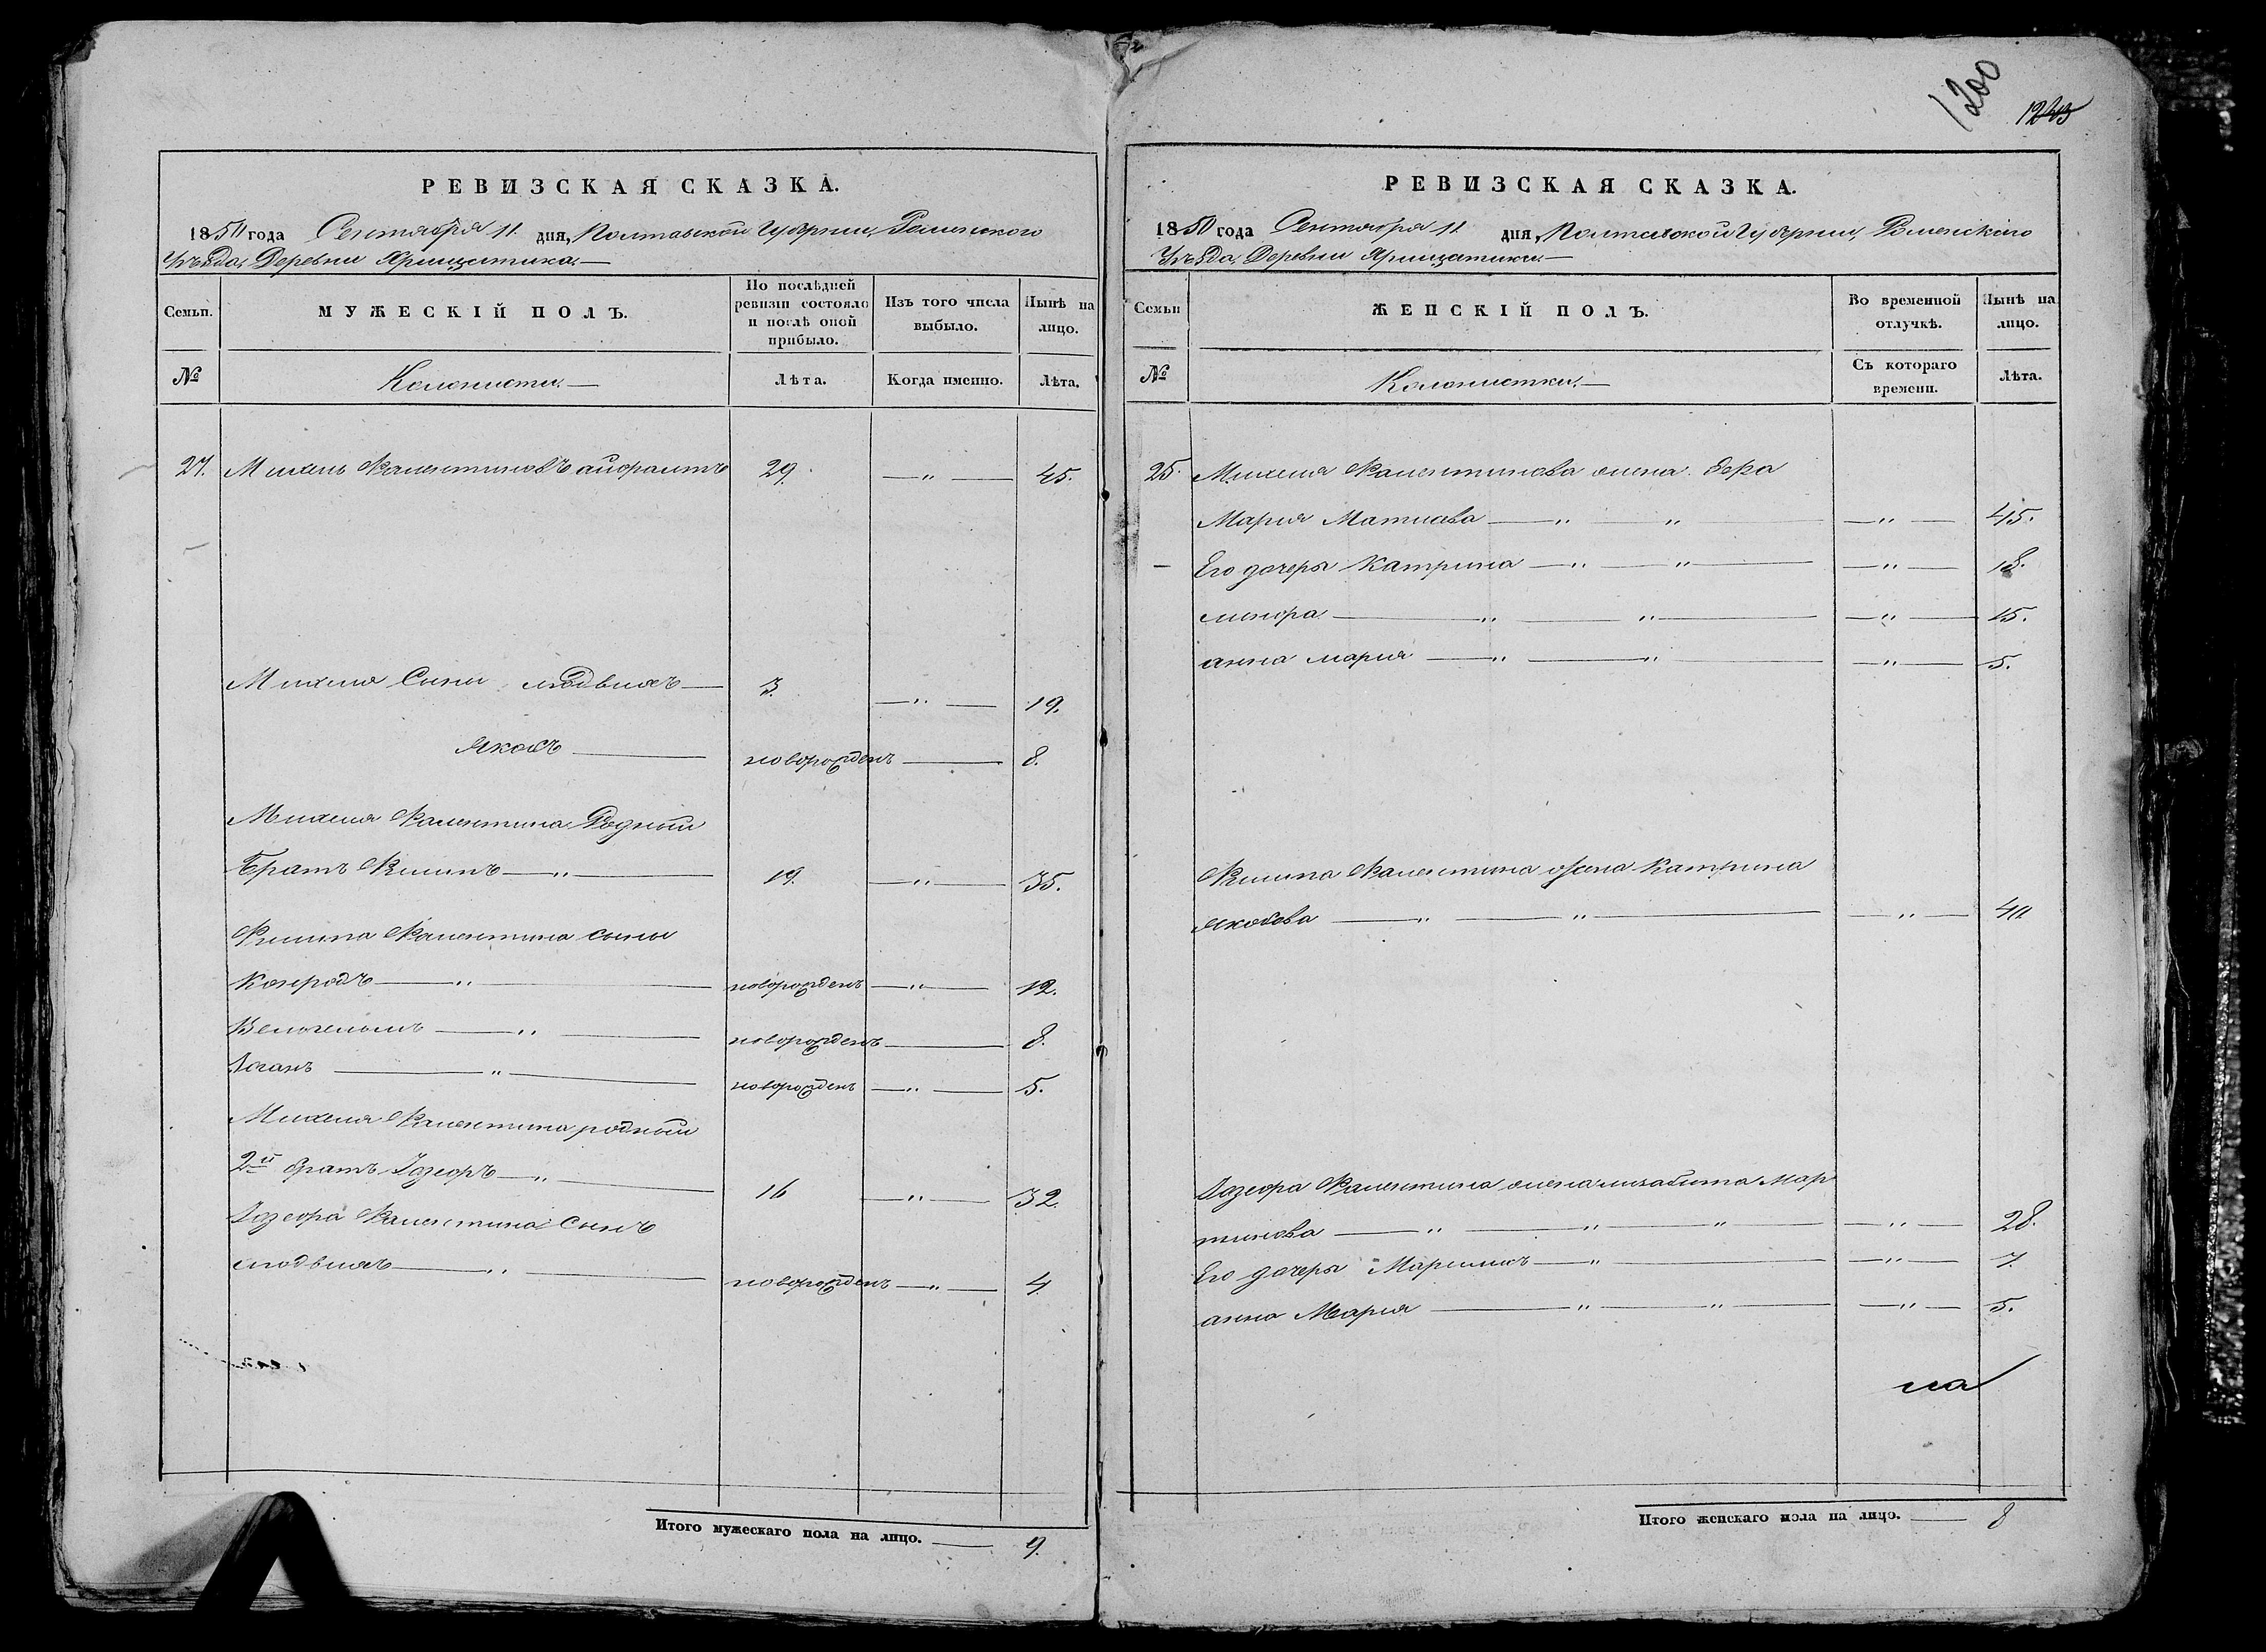 1200
1243
РЕВИЗСКАЯ СКАЗКА.
1850 года Сентября 11 дня, Полтавской Губернии, Роменского
Уѣзда, Деревни
Семьи. МУЖЕСКІЙ ПОЛЪ. По послѣдней ревизіи состояло и послѣ оной прибыло. Изъ того числа выбыло. Нынѣ на лицо.
№ Колонисты.— Лѣта. Когда именно. Лѣта.
27. Михель Валентиновъ 29. —„— 45.
Михеля Сыны людвихъ— 3. —„— 19.
якобъ — новорожденъ — 8.
Михеля Валентина Родный
Братъ Филипъ —„— 19. —„— 35.
Филипа Валентина сыны
Конродъ —„— новорожденъ —„— 12.
Вельгельмъ —„— новорожденъ — 8.
Іоганъ —„— новорожденъ —„— 5.
Михеля Валентина родный
2й братъ —„— 16 —„— 32.
Валентина Сынъ
людвихъ —„— новорожденъ —„— 4
Итого мужескаго пола на лицо. — 9.
РЕВИЗСКАЯ СКАЗКА.
1850 года Сентября 11 дня, Полтавской Губерніи, Роменскаго
Уѣзда, Деревни
Семьи ЖЕНСКІЙ ПОЛЪ. Во временной отлучкѣ. Нынѣ на лицо.
№ Колонистки.— Съ котораго времени. Лѣта.
25. Михеля Валентинова жена
Мария Матиова —„ „— —„— 45.
— Его дочеры Катрина —„—„— —„— 18.
линора —„—„— —„— 15.
анна мария —„—„— —„— 5.
Филипа Валентина жена Катрина
якобова —„—„— „— 40
Валентина жена лизабита Мар
тинова —„—„—„— —„— 28.
Его дочеры —„— —„— 7.
анна Мария —„—„— —„— 5.
Итого женскаго пола на лицо. — 8